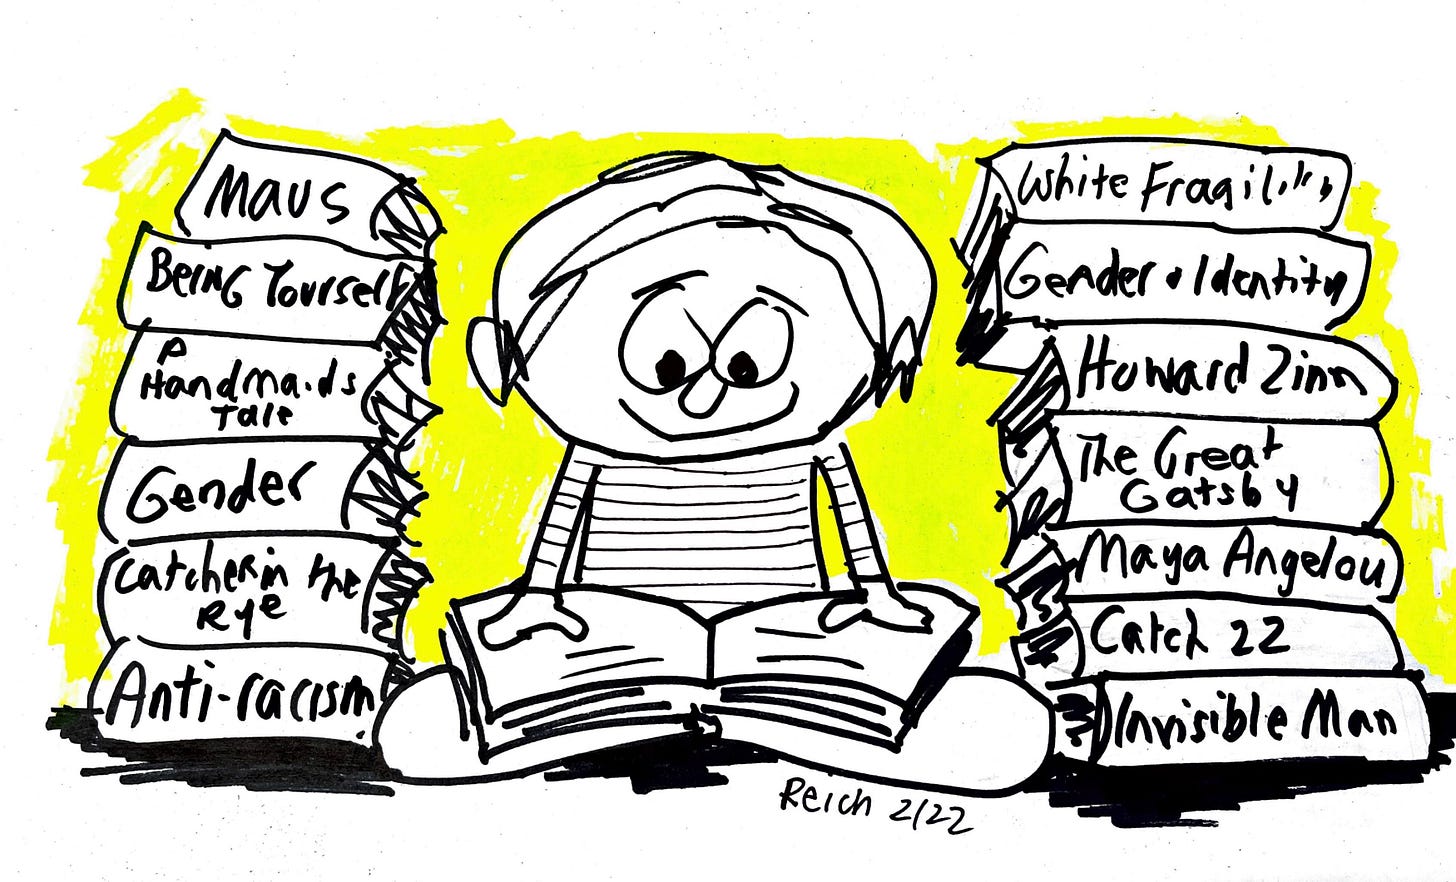 Maus
Being Yourself
A
Handmaids
Tale
Gender
Catcher in the
Rye
Anti-racism
White Fragility
Gender + Identity
Howard Zinn
The Great
Gatsby
Maya Angelou
Catch 22
Invisible Man
Reich 2/22